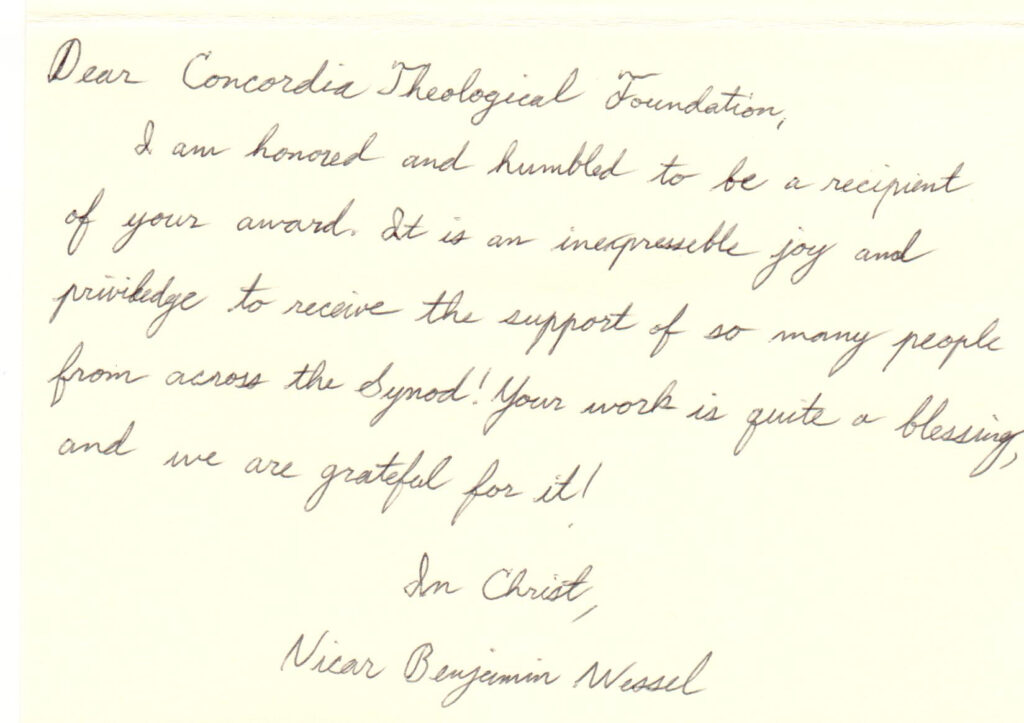 Dear Concordia Theological Foundation,
I am honored and humbled to be a recipient
of your award. It is an inexpresseble joy and
priviledge to receive the support of so many people
from across the Synod! Your work is quite a blessing,
and we are grateful for it!
In Christ,
Vicar Benjamin Wessel